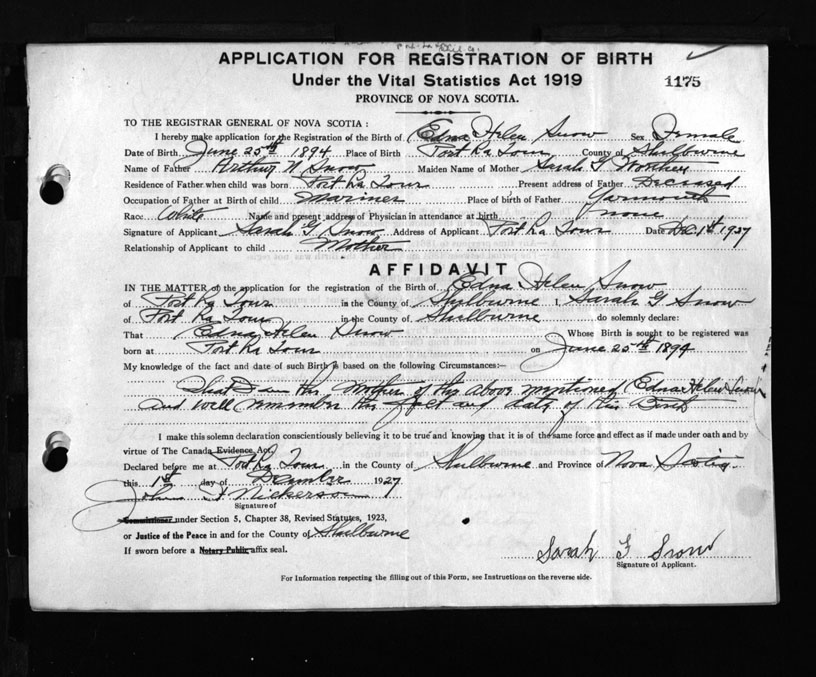 APPLICATION FOR REGISTRATION OF BIRTH
Under the Vital Statistics Act 1919
1175
PROVINCE OF NOVA SCOTIA.
TO THE REGISTRAR GENERAL OF NOVA SCOTIA :
I hereby make application for the Registration of the Birth of Edna Helen Snow Sex Female
Date of Birth June 25th 1894 Place of Birth Port La Tour County of Shelburne
Name of Father Arthur W Snow Maiden Name of Mother Sarah G
Residence of Father when child was born Port La Tour Present address of Father Deceased
Occupation of Father at Birth of child Mariner Place of birth of Father Yarmouth
Race White Name and present address of Physician in attendance at birth none
Signature of Applicant Sarah G Snow Address of Applicant Port La Tour Date Dec 1st 1927
Relationship of Applicant to child Mother
AFFIDAVIT
IN THE MATTER of the application for the registration of the Birth of Edna Helen Snow
of Port La Tour in the County of Shelburne I, Sarah G Snow
of Port La Tour in the County of Shelburne do solemnly declare:
That Edna Helen Snow Whose Birth is sought to be registered was
born at Port La Tour on June 25th 1894
My knowledge of the fact and date of such Birth is based on the following Circumstances:—
That I am the Mother of the above mentioned Edna Helen Snow
and well remember the fact and date of her Birth
I make this solemn declaration conscientiously believing it to be true and knowing that it is of the same force and effect as if made under oath and by
virtue of The Canada Evidence Act.
Declared before me at Port La Tour in the County of Shelburne and Province of Nova Scotia
this 1st day of December 1927
John F Nickerson
Signature of
Commissioner under Section 5, Chapter 38, Revised Statutes, 1923,
or Justice of the Peace in and for the County of Shelburne
If sworn before a Notary Public affix seal.
Sarah G Snow
Signature of Applicant.
For Information respecting the filling out of this Form, see Instructions on the reverse side.